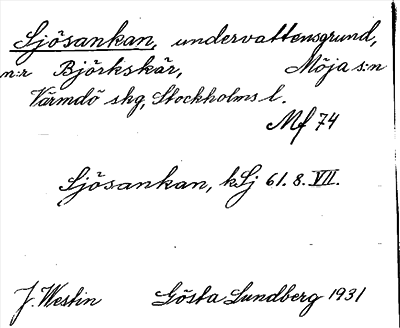 Sjösankan, undervattensgrund,
n:r Björkskär, Möja s:n
Värmdö skg, Stockholms l.
Mf 74
Sjösankan, kSj 61. 8. VII.
J. Westin Gösta Lundberg 1931